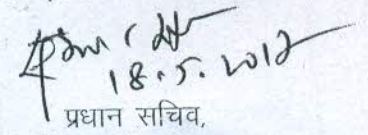 18.5.2012
प्रधान सचिव,